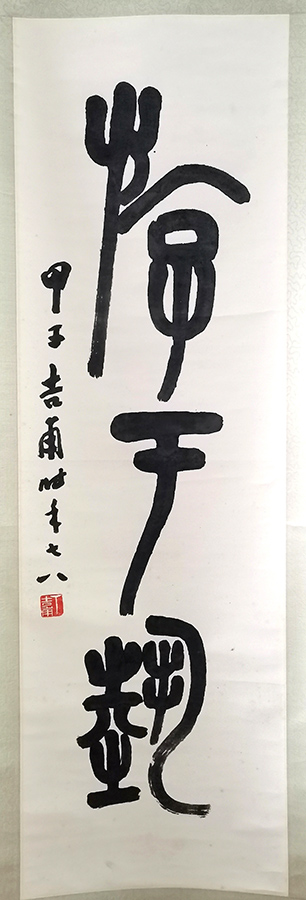 游于艺
甲子吉甫时年七八